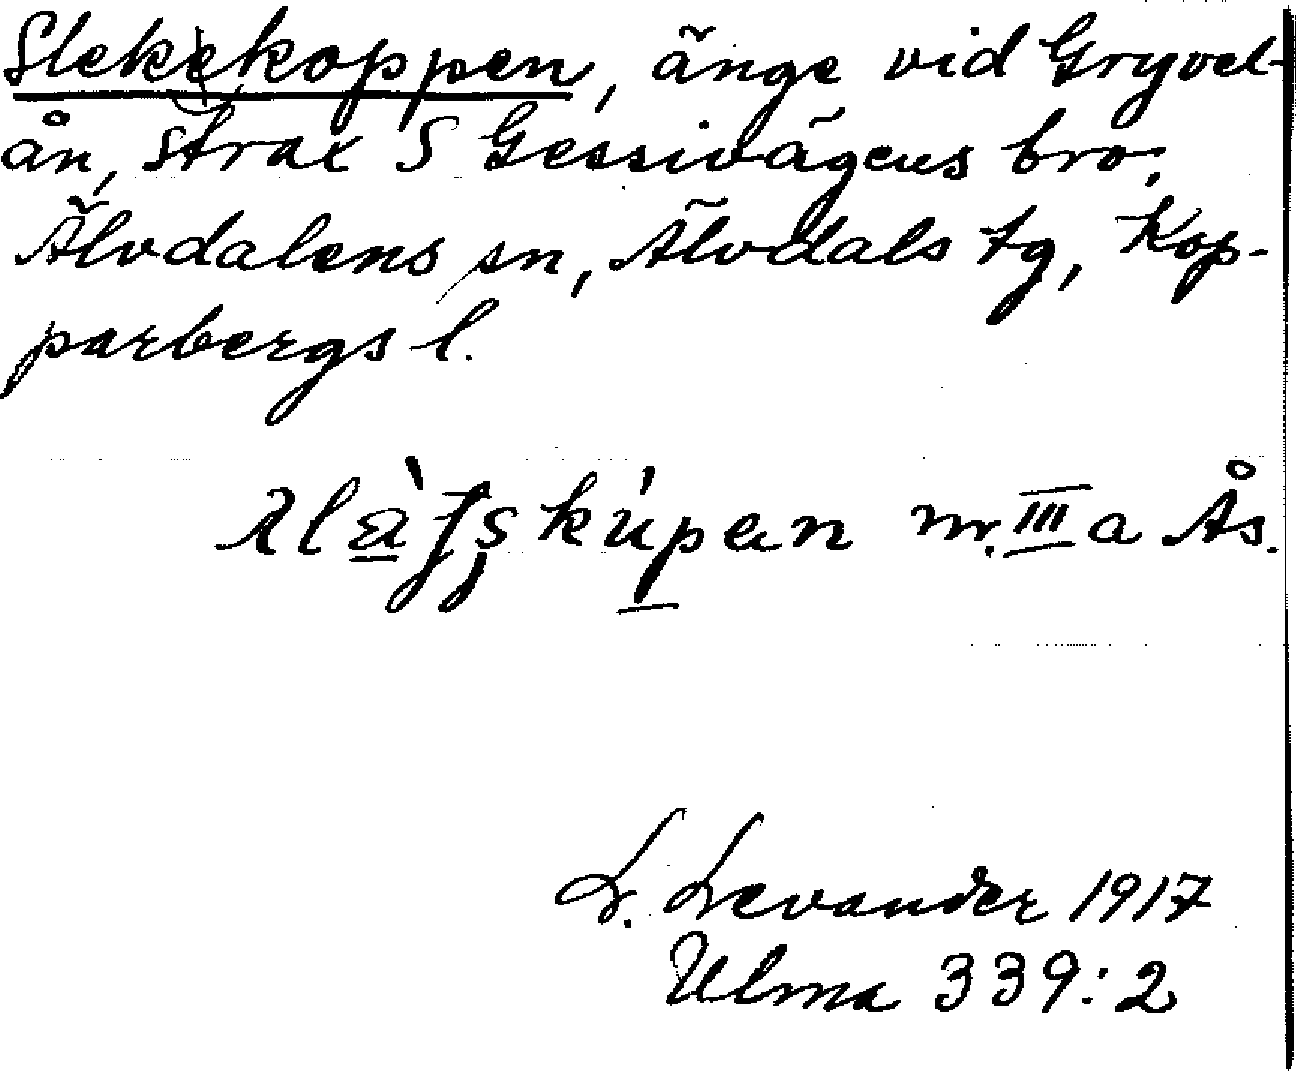 Slekekoppen, änge vid Gryvel-
ån, strax S Gessivägens bro,
Älvdalens sn, Älvdals tg, Kop-
parbergs l.
m. III a Ås.
L. Levander 1917
Ulma 339:2